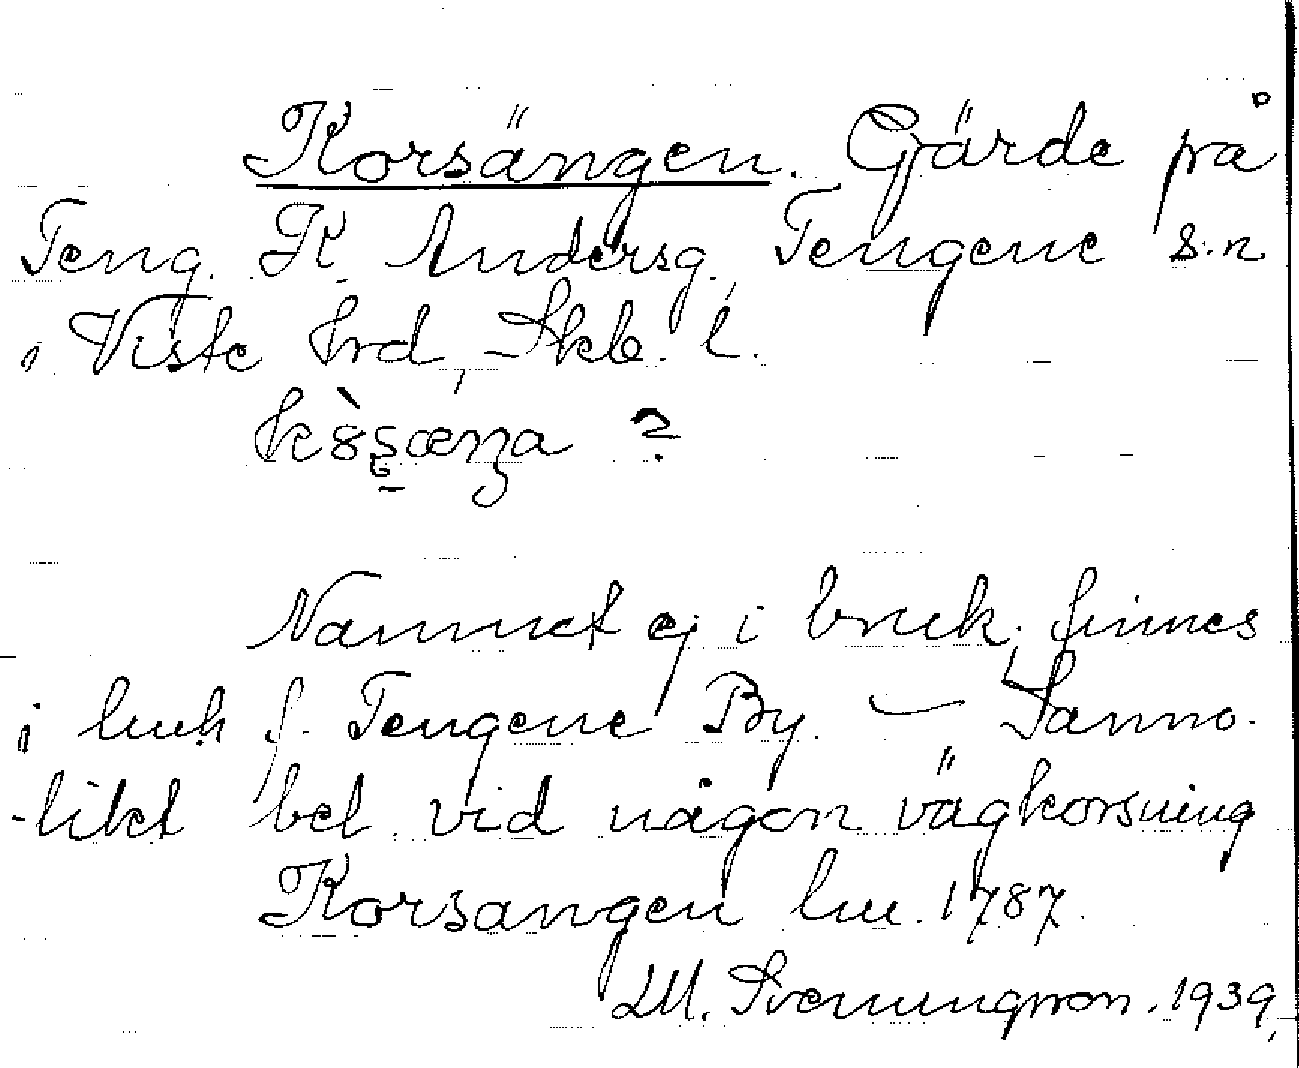 Korsängen. Gärde på
Teng. K. Andersg., Tengene s:n
i Viste hrd, Skb. l.
Namnet ej i bruk; finnes
i lmh f. Tengene By. — Sanno-
-likt bel. vid någon vägkorsning
Korsangen lm. 1787.
M. Svenungsson. 1939,